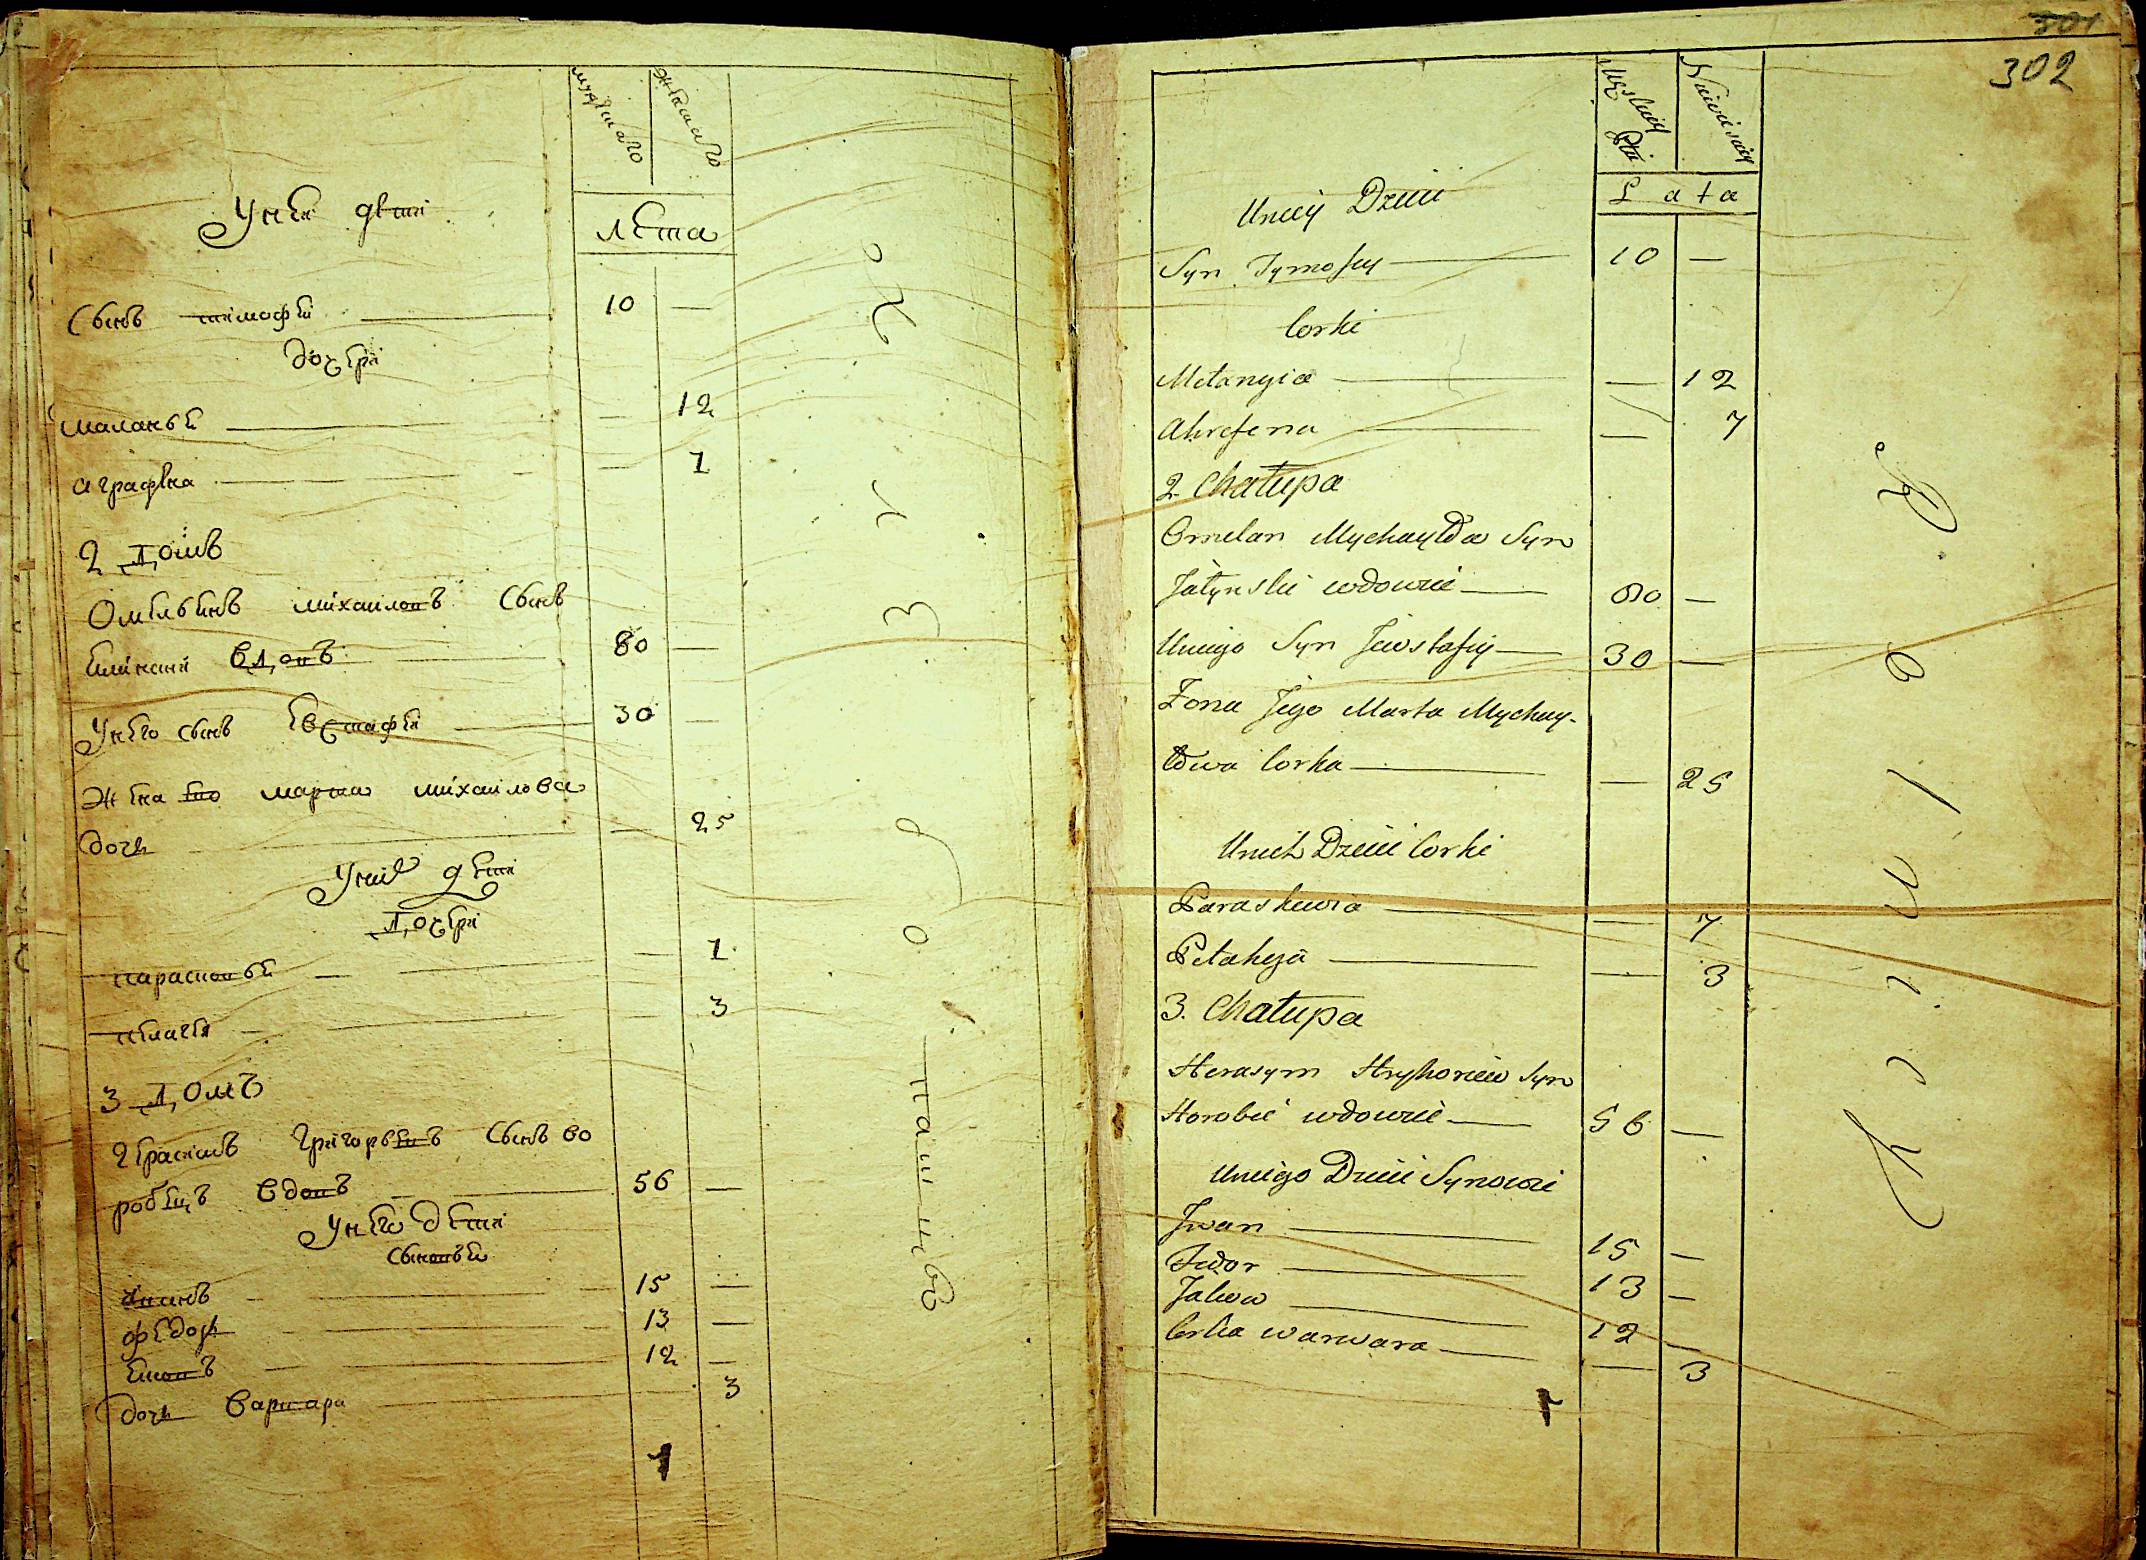 мужескаго
женскаго
лѣта
У нея дѣти
Сынъ тимофѣй 10 —
дочери
маланья — 12
аграфѣна — 7
2 Домъ
Омельянъ михаиловъ Сынъ
вдовъ 80 —
У него сынъ Евстафей 30 —
Жена его марта михаилова
дочь — 25
У них дѣти
Дочери
парасковья — 7
пелагея — 3
3 Домъ
Герасимъ Григорьевъ Сынъ во
робецъ вдовъ 56 —
У него дѣти
сыновья
иванъ 15 —
федор 13 —
12 —
дочь варвара 3
1
302
Męskiey
Płci
Niewieściey
Lata
Uniey Dzieci
Syn Tymofiey 10 —
Corki
Melangia — 12
Ahrefena — 7
2 Chałupa
Omelan Mychayłow Syn
wdowiec 80 —
Uniego Syn Jewstafiy 30 —
Żona Jego Marta Mychay-
łowa Corka — 25
Unich Dzieci Corki
Paraskewia — 7
Pelaheja — 3
3. Chałupa
Herasym Hryhoriew Syn
Horobeć wdowiec 56 —
Uniego Dzieci Synowie
Jwan 15 —
Fedor 13 —
12 —
Corka warwara — 3